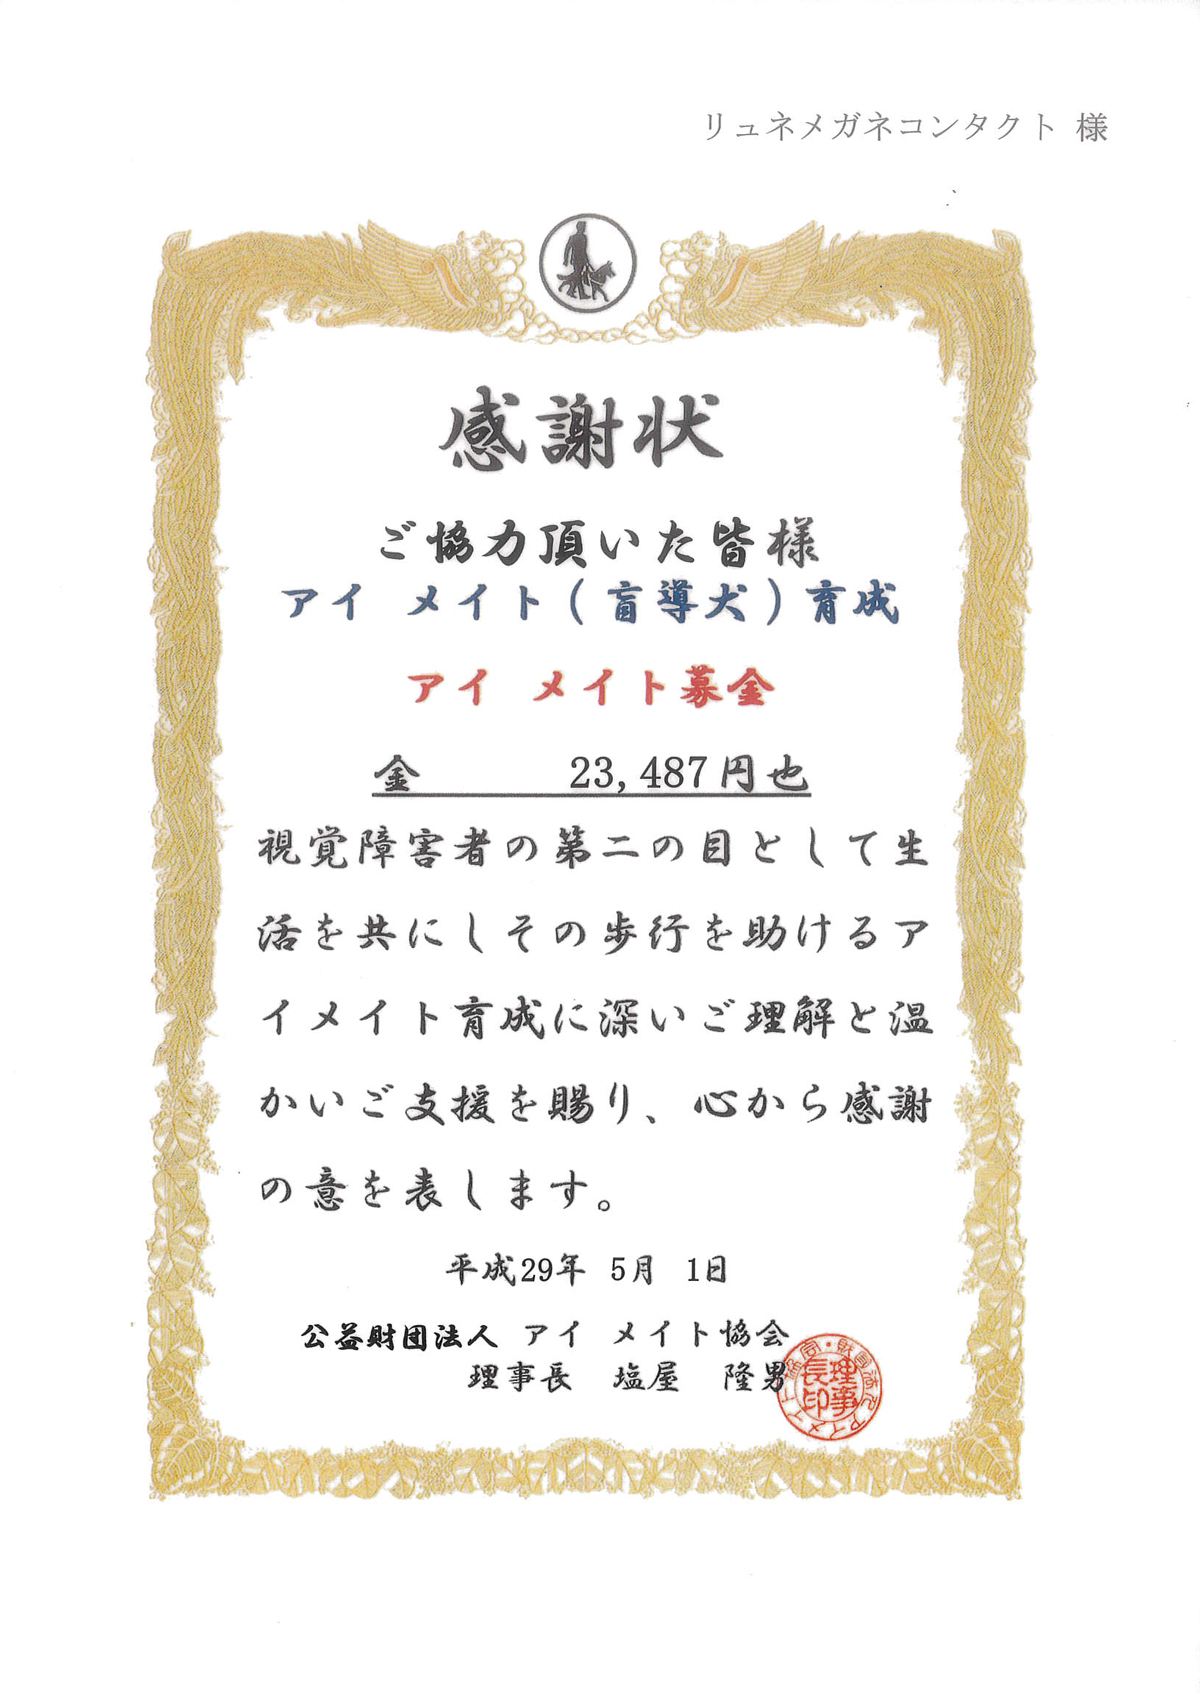 リュネメガネコンタクト 様
感謝状
ご協力頂いた皆様
アイ メイト(盲導犬)育成
アイ メイト募金
金 23,487円也
視覚障害者の第二の目として生
活を共にしその歩行を助けるア
イメイト育成に深いご理解と温
かいご支援を賜り、心から感謝
の意を表します。
平成29年 5月 1日
公益財団法人 アイ メイト協会
理事長 塩屋 隆男
理事
長印